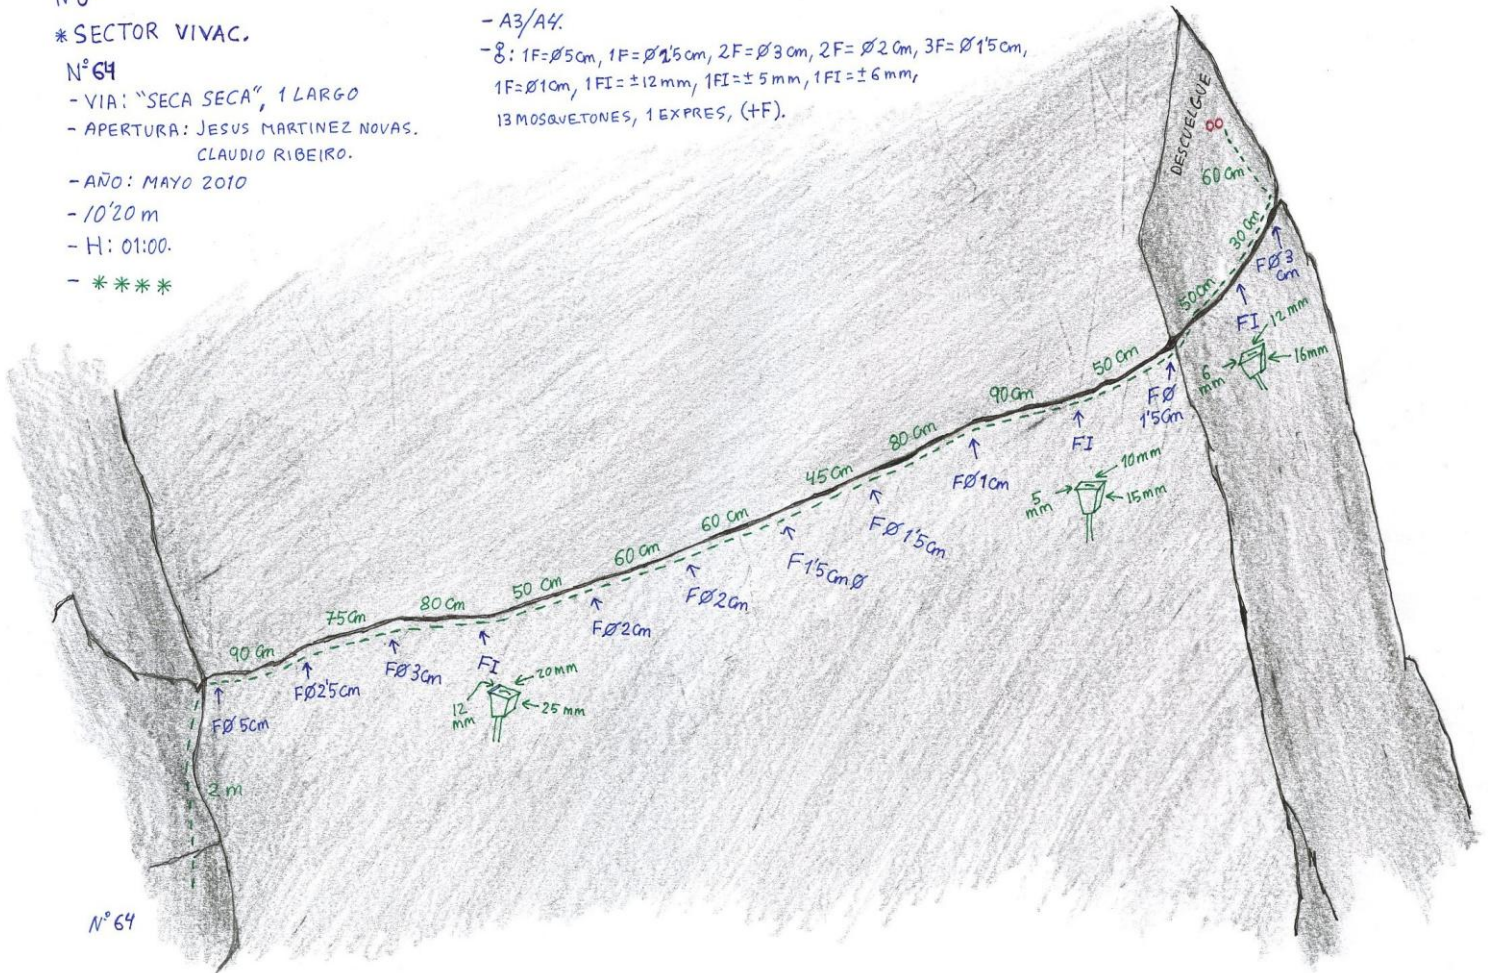 * SECTOR VIVAC.
Nº 64
- VIA: "SECA SECA", 1 LARGO
- APERTURA: JESUS MARTINEZ NOVAS.
CLAUDIO RIBEIRO.
- AÑO: MAYO 2010
- 10'20 m
- H: 01:00.
- ****
- A3/A4.
- 8: 1F=Ø5cm, 1F=Ø2'5cm, 2F=Ø3cm, 2F=Ø2cm, 3F=Ø1'5cm,
1F=Ø1cm, 1FI=±12mm, 1FI=±5mm, 1FI=±6mm,
13 MOSQUETONES, 1 EXPRES, (+F).
DESCUELGUE
60 cm
30 cm
FØ3
cm
50 cm
FI
12 mm
16 mm
6
mm
50 cm
FØ
1'5cm
90 cm
FI
10 mm
15 mm
5
mm
80 cm
FØ1cm
45 cm
FØ1'5cm
60 cm
F1'5cmØ
60 cm
FØ2cm
50 cm
FØ2cm
80 cm
FI
20 mm
25 mm
12
mm
75 cm
FØ3cm
90 cm
FØ2'5cm
FØ5cm
2 m
Nº 64